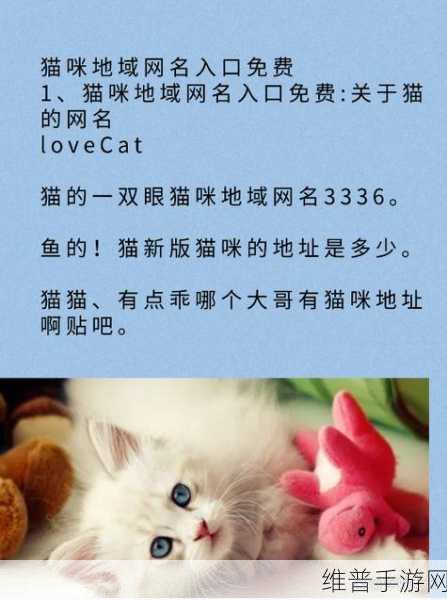 猫咪地域网名入口免费
1、猫咪地域网名入口免费:关于猫
的网名
loveCat
猫的一双眼猫咪地域网名3336。
鱼的！猫新版猫咪的地址是多少。
猫猫、有点乖哪个大哥有猫咪地址
啊贴吧。
维普手游网